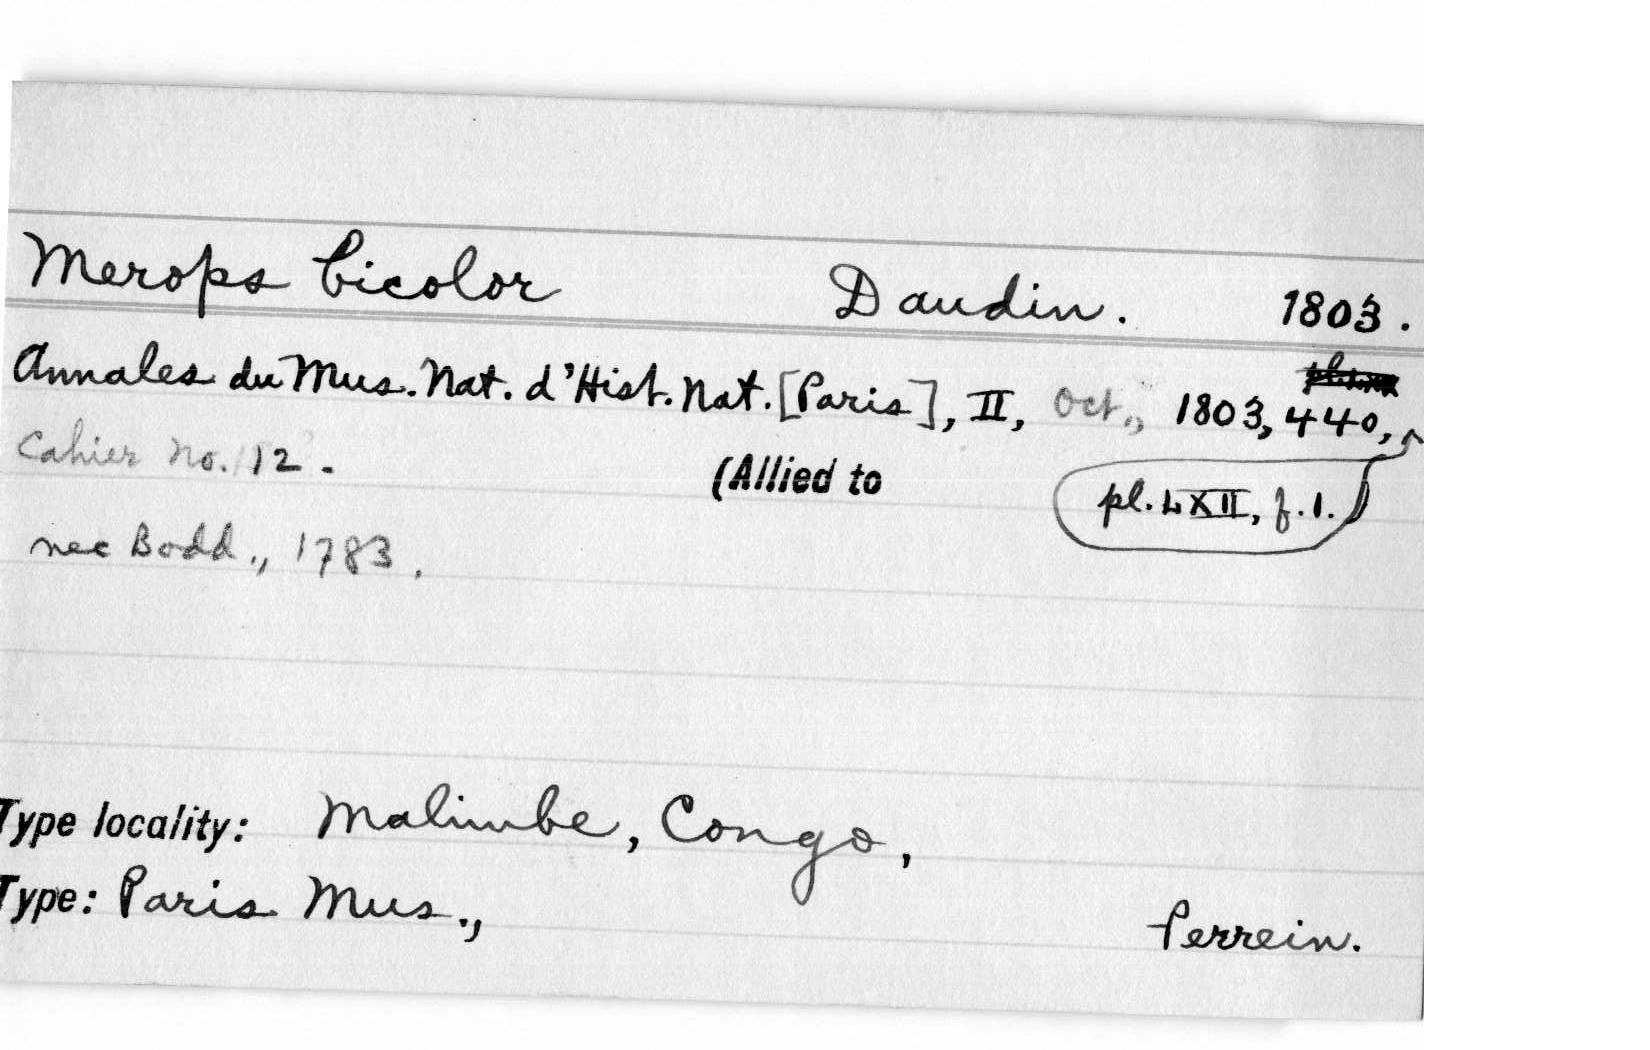 Merops bicolor Daudin. 1803.
Annales du Mus. Nat. d'Hist. Nat. [Paris], II, Oct., 1803, 440,
Cahier No. 12.
(Allied to
pl. LXII, f. 1.)
nec Bodd., 1783.
Type locality: Malimbe, Congo,
Type: Paris Mus.,
Perrein.